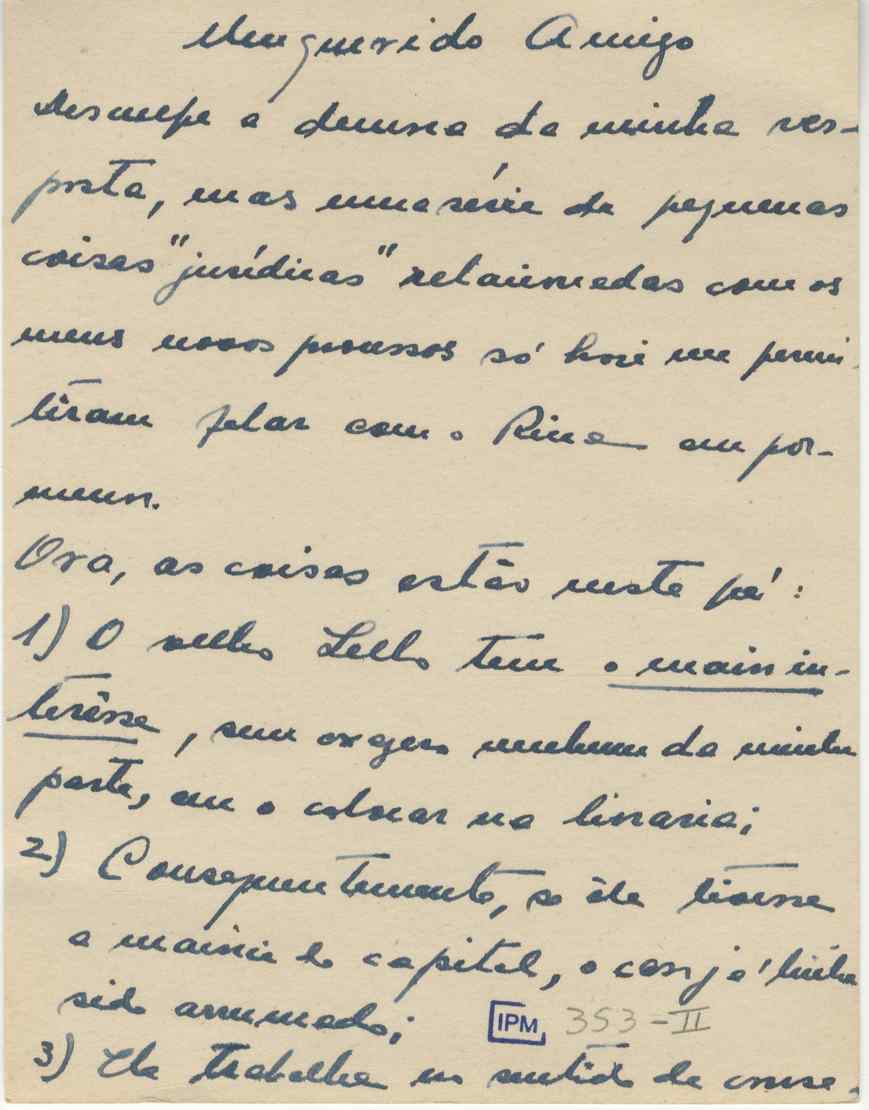 Meu querido Amigo
Desculpe a demora da minha res-
posta, mas uma série de pequenas
coisas "jurídicas" relacionadas com os
meus novos processos só hoje me permi-
tiram falar com o Rina em por-
menor.
Ora, as coisas estão neste pé:
1) O velho Lello tem o maior in-
terêsse, sem exagero nenhum da minha
parte, em o colocar na livraria;
2) Consequentemente, se êle tivesse
a maioria do capital, o caso já tinha
sido arrumado;
3) Ele trabalha no sentido de conse-
IPM 353-II